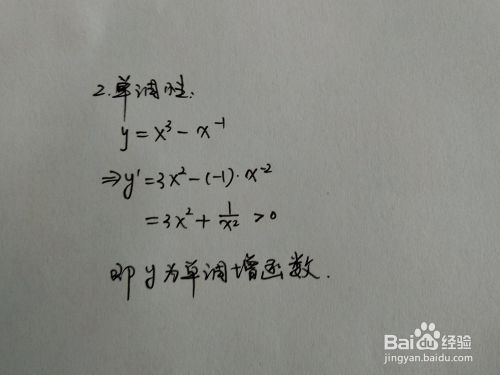 2.单调性:
y=x³-x⁻¹
⇒y'=3x²-(-1)·x⁻²
=3x²+1/x²>0
即y为单调增函数.
Baidu经验
jingyan.baidu.com